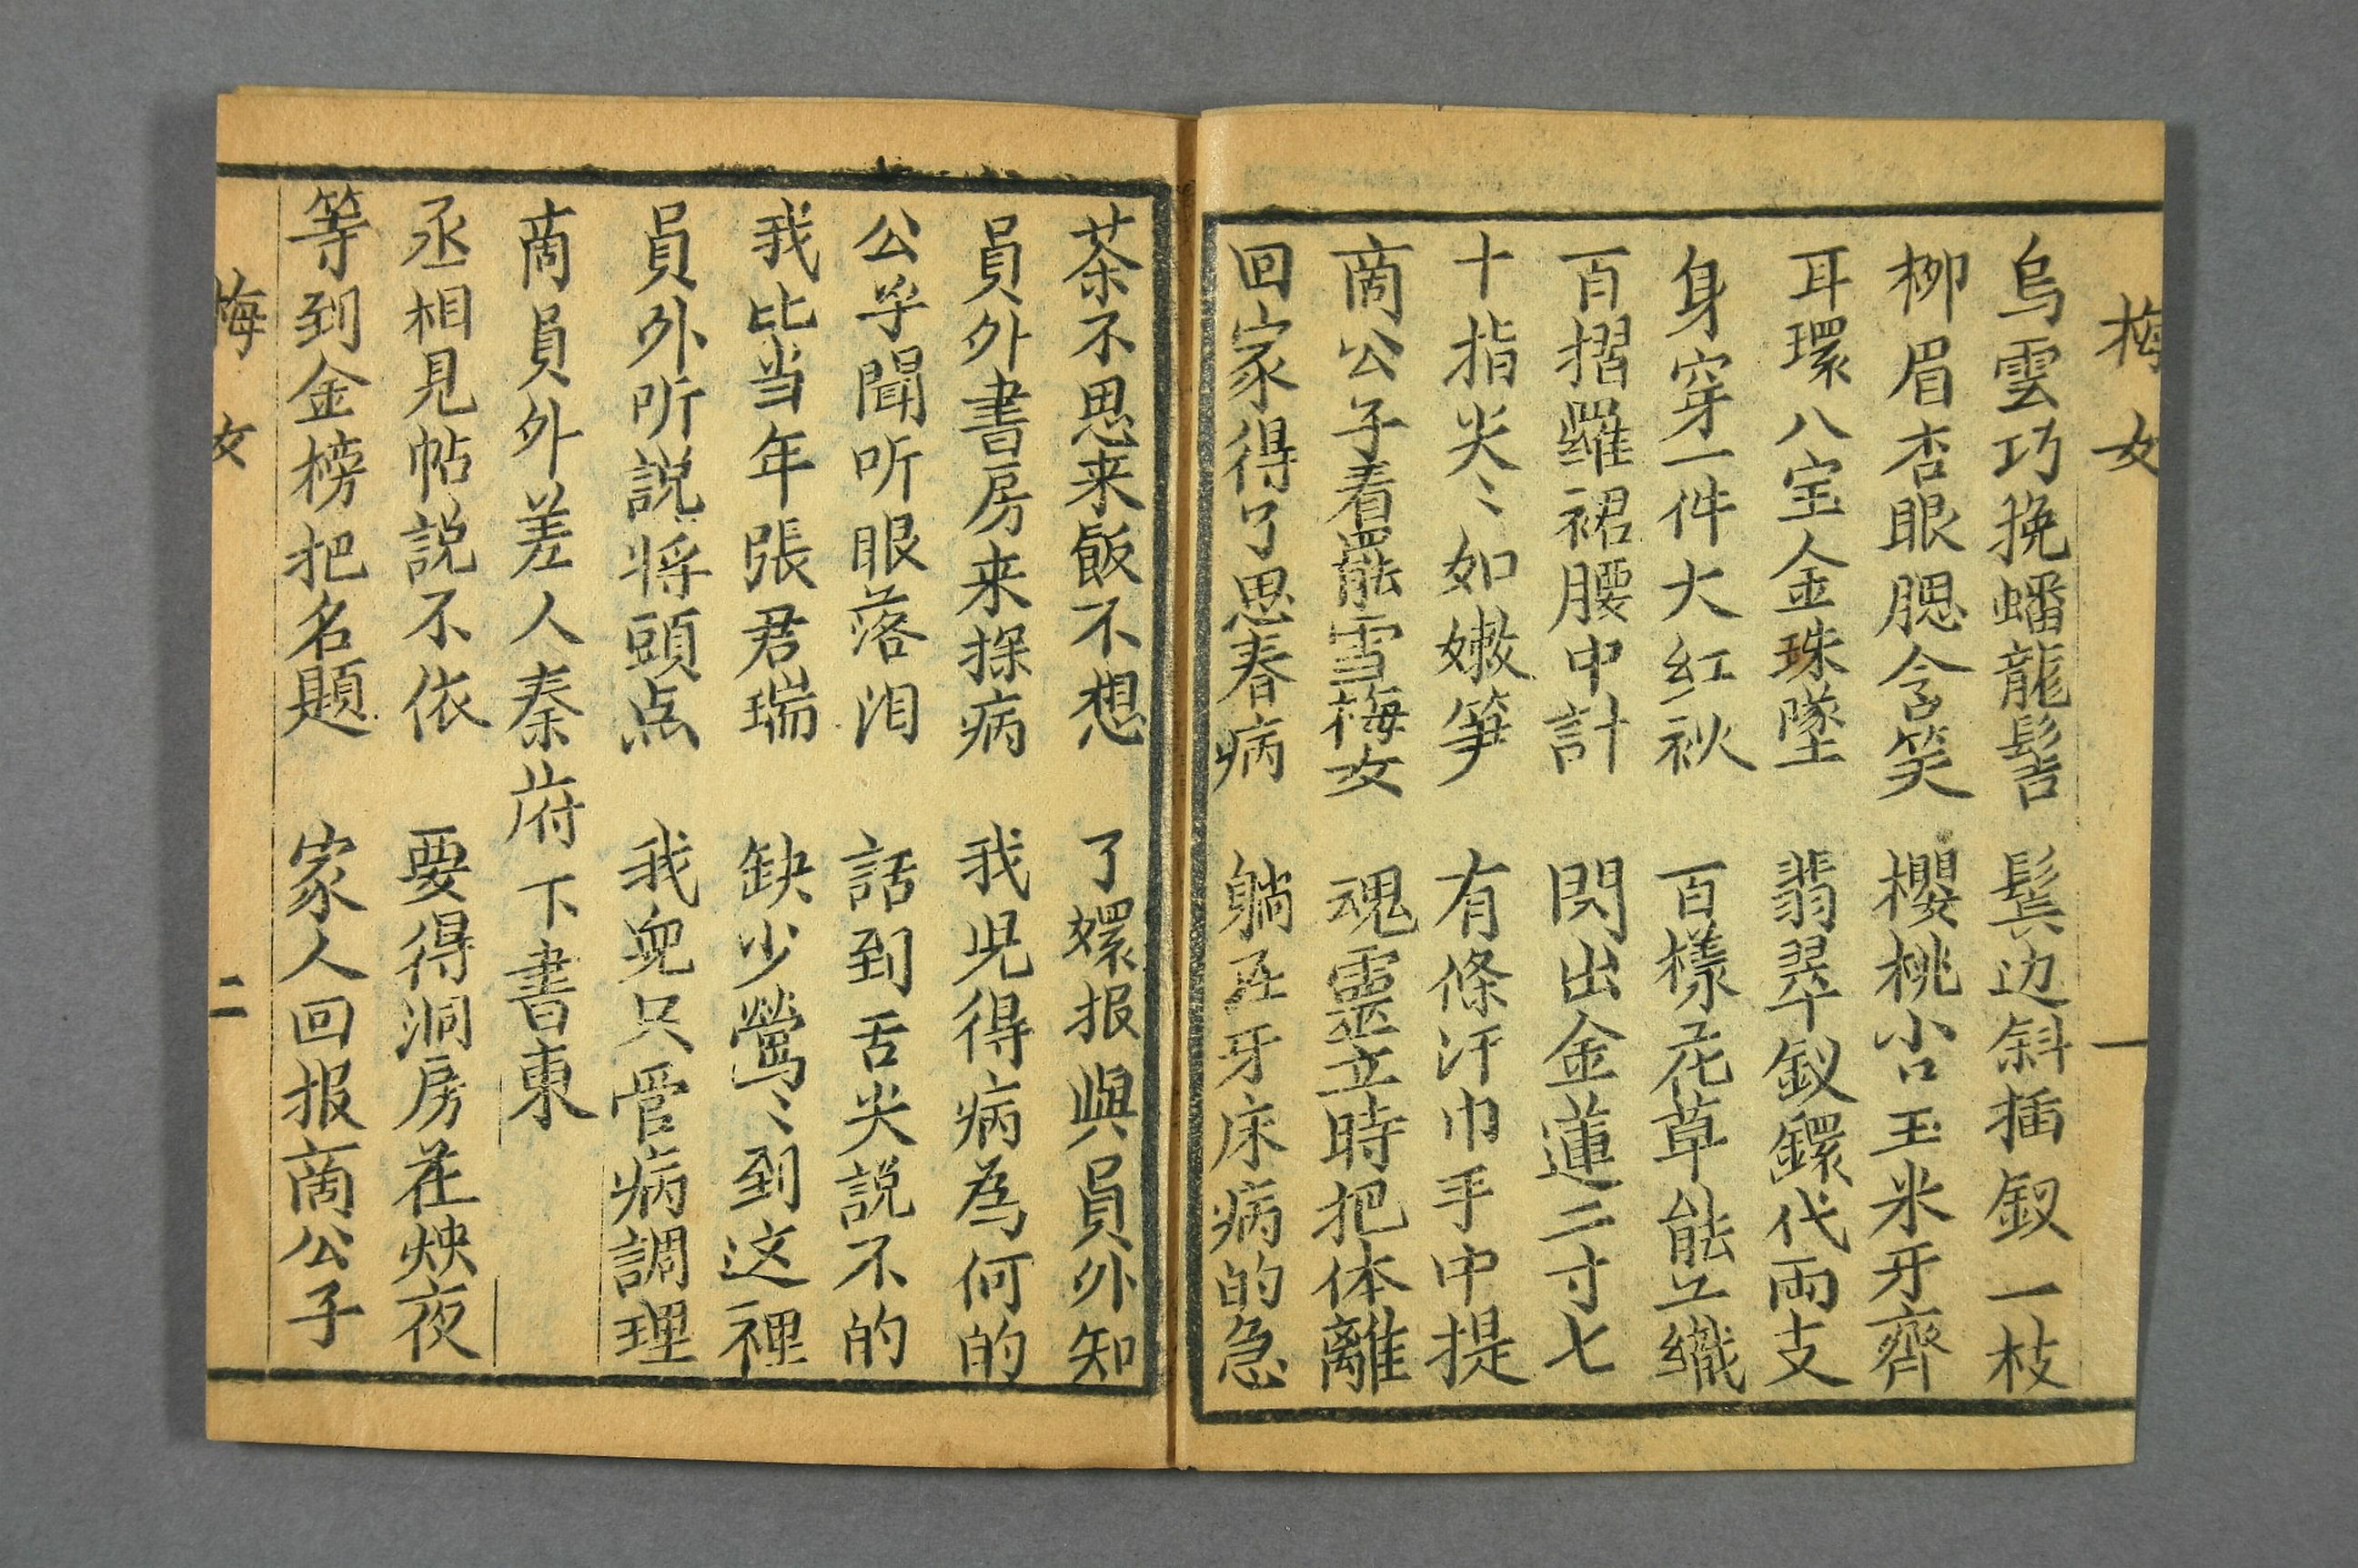 梅女 一
烏雲巧挽蟠龍髻 鬓边斜插釵一枝
柳眉杏眼腮含笑 櫻桃小口玉米牙齊
耳環八宝金珠墜 翡翠釵鐶代両支
身穿一件大红袄 百樣花草能工織
百摺羅裙腰中計 閃出金蓮二寸七
十指尖〻如嫩笋 有條汗巾手中提
商公子看罷雪梅女 魂靈立時把体離
回家得了思春病 躺在牙床病的急
茶不思来飯不想 了嬛报與員外知
員外書房来探病 我児得病為何的
公子聞听眼落泪 話到舌尖説不的
我比当年張君瑞 缺少鶯〻到这裡
員外听説将頭点 我児只管病調理
商員外差人秦府下書柬
丞相見帖説不依 要得洞房花烛夜
等到金榜把名題 家人回报商公子
梅女 二